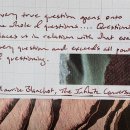 very true question opens onto
the whole of questions. Question
places us in relation with that
every question and exceeds all power
of questioning.
Maurice Blanchot, The Infinite Conversa